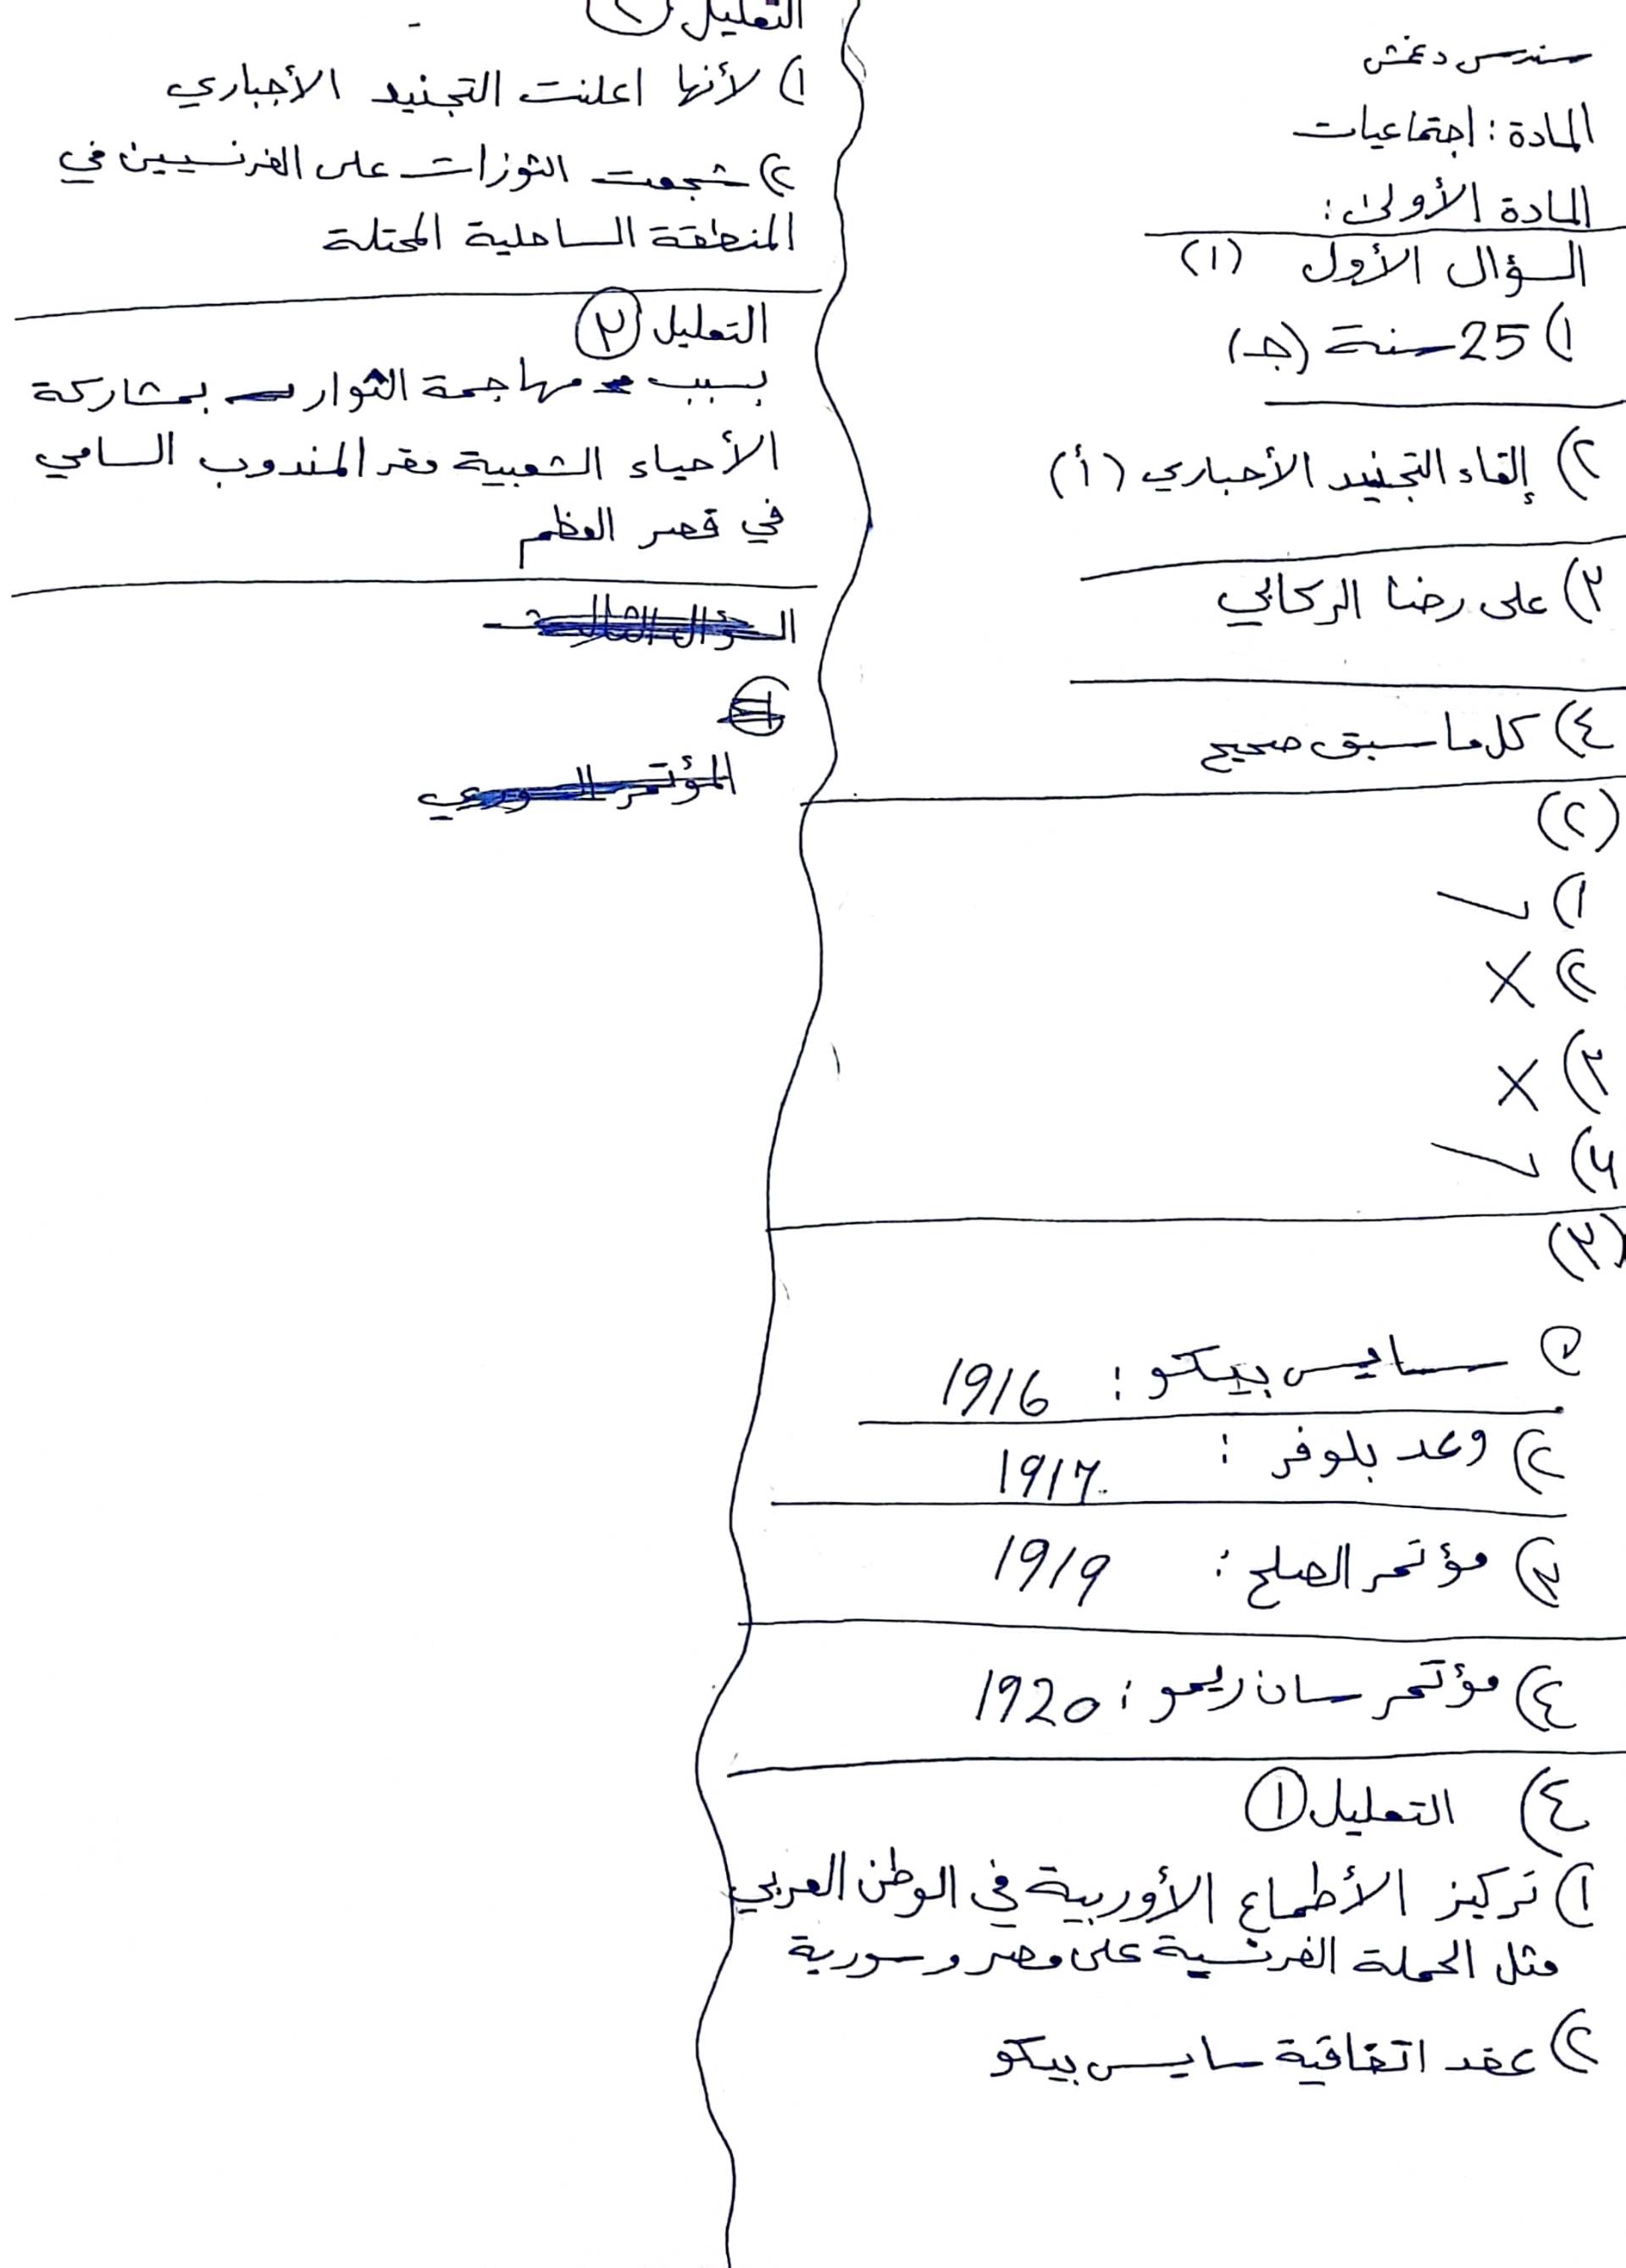 سندس دعمش
المادة: اجتماعيات
المادة الأولى:
السؤال الأول (١)
١) 25 سنة (جـ)
٢) إلقاء التجنيد الأجباري (أ)
٣) على رضا الركابي
٤) كل ما سبق صحيح
(٢)
١) ✓
٢) X
٣) X
٤) ✓
(٣)
١) سايس بيكو: 1916
٢) وعد بلوفر: 1917
٣) مؤتمر الصلح: 1919
٤) مؤتمر سان ريمو: 1920
٤) التعليل ①
١) تركيز الأطماع الأوربية في الوطن العربي
مثل الحملة الفرنسية على مصر وسورية
٢) عقد اتفاقية سايس بيكو
التعليل ②
١) لأنها اعلنت التجنيد الأجباري
٢) شجعت الثوزات على الفرنسيين في
المنطقة الساحلية المحتلة
التعليل ③
بسبب مهاجمة الثوار بمشاركة
الأحياء الشعبية مقر المندوب السامي
في قصر العظم
السؤال الثالث
المؤتمر السوري